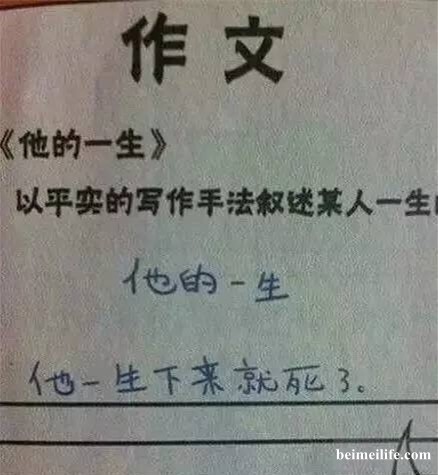 作文
《他的一生》
以平实的写作手法叙述某人一生
他的一生
他一生下来就死了。
beimeilife.com